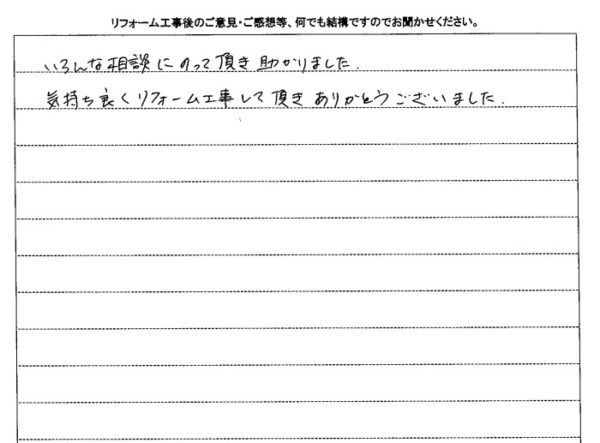 リフォーム工事後のご意見・ご感想等、何でも結構ですのでお聞かせください。
いろんな相談にのって頂き助かりました.
気持ち良くリフォーム工事して頂きありがとうございました.